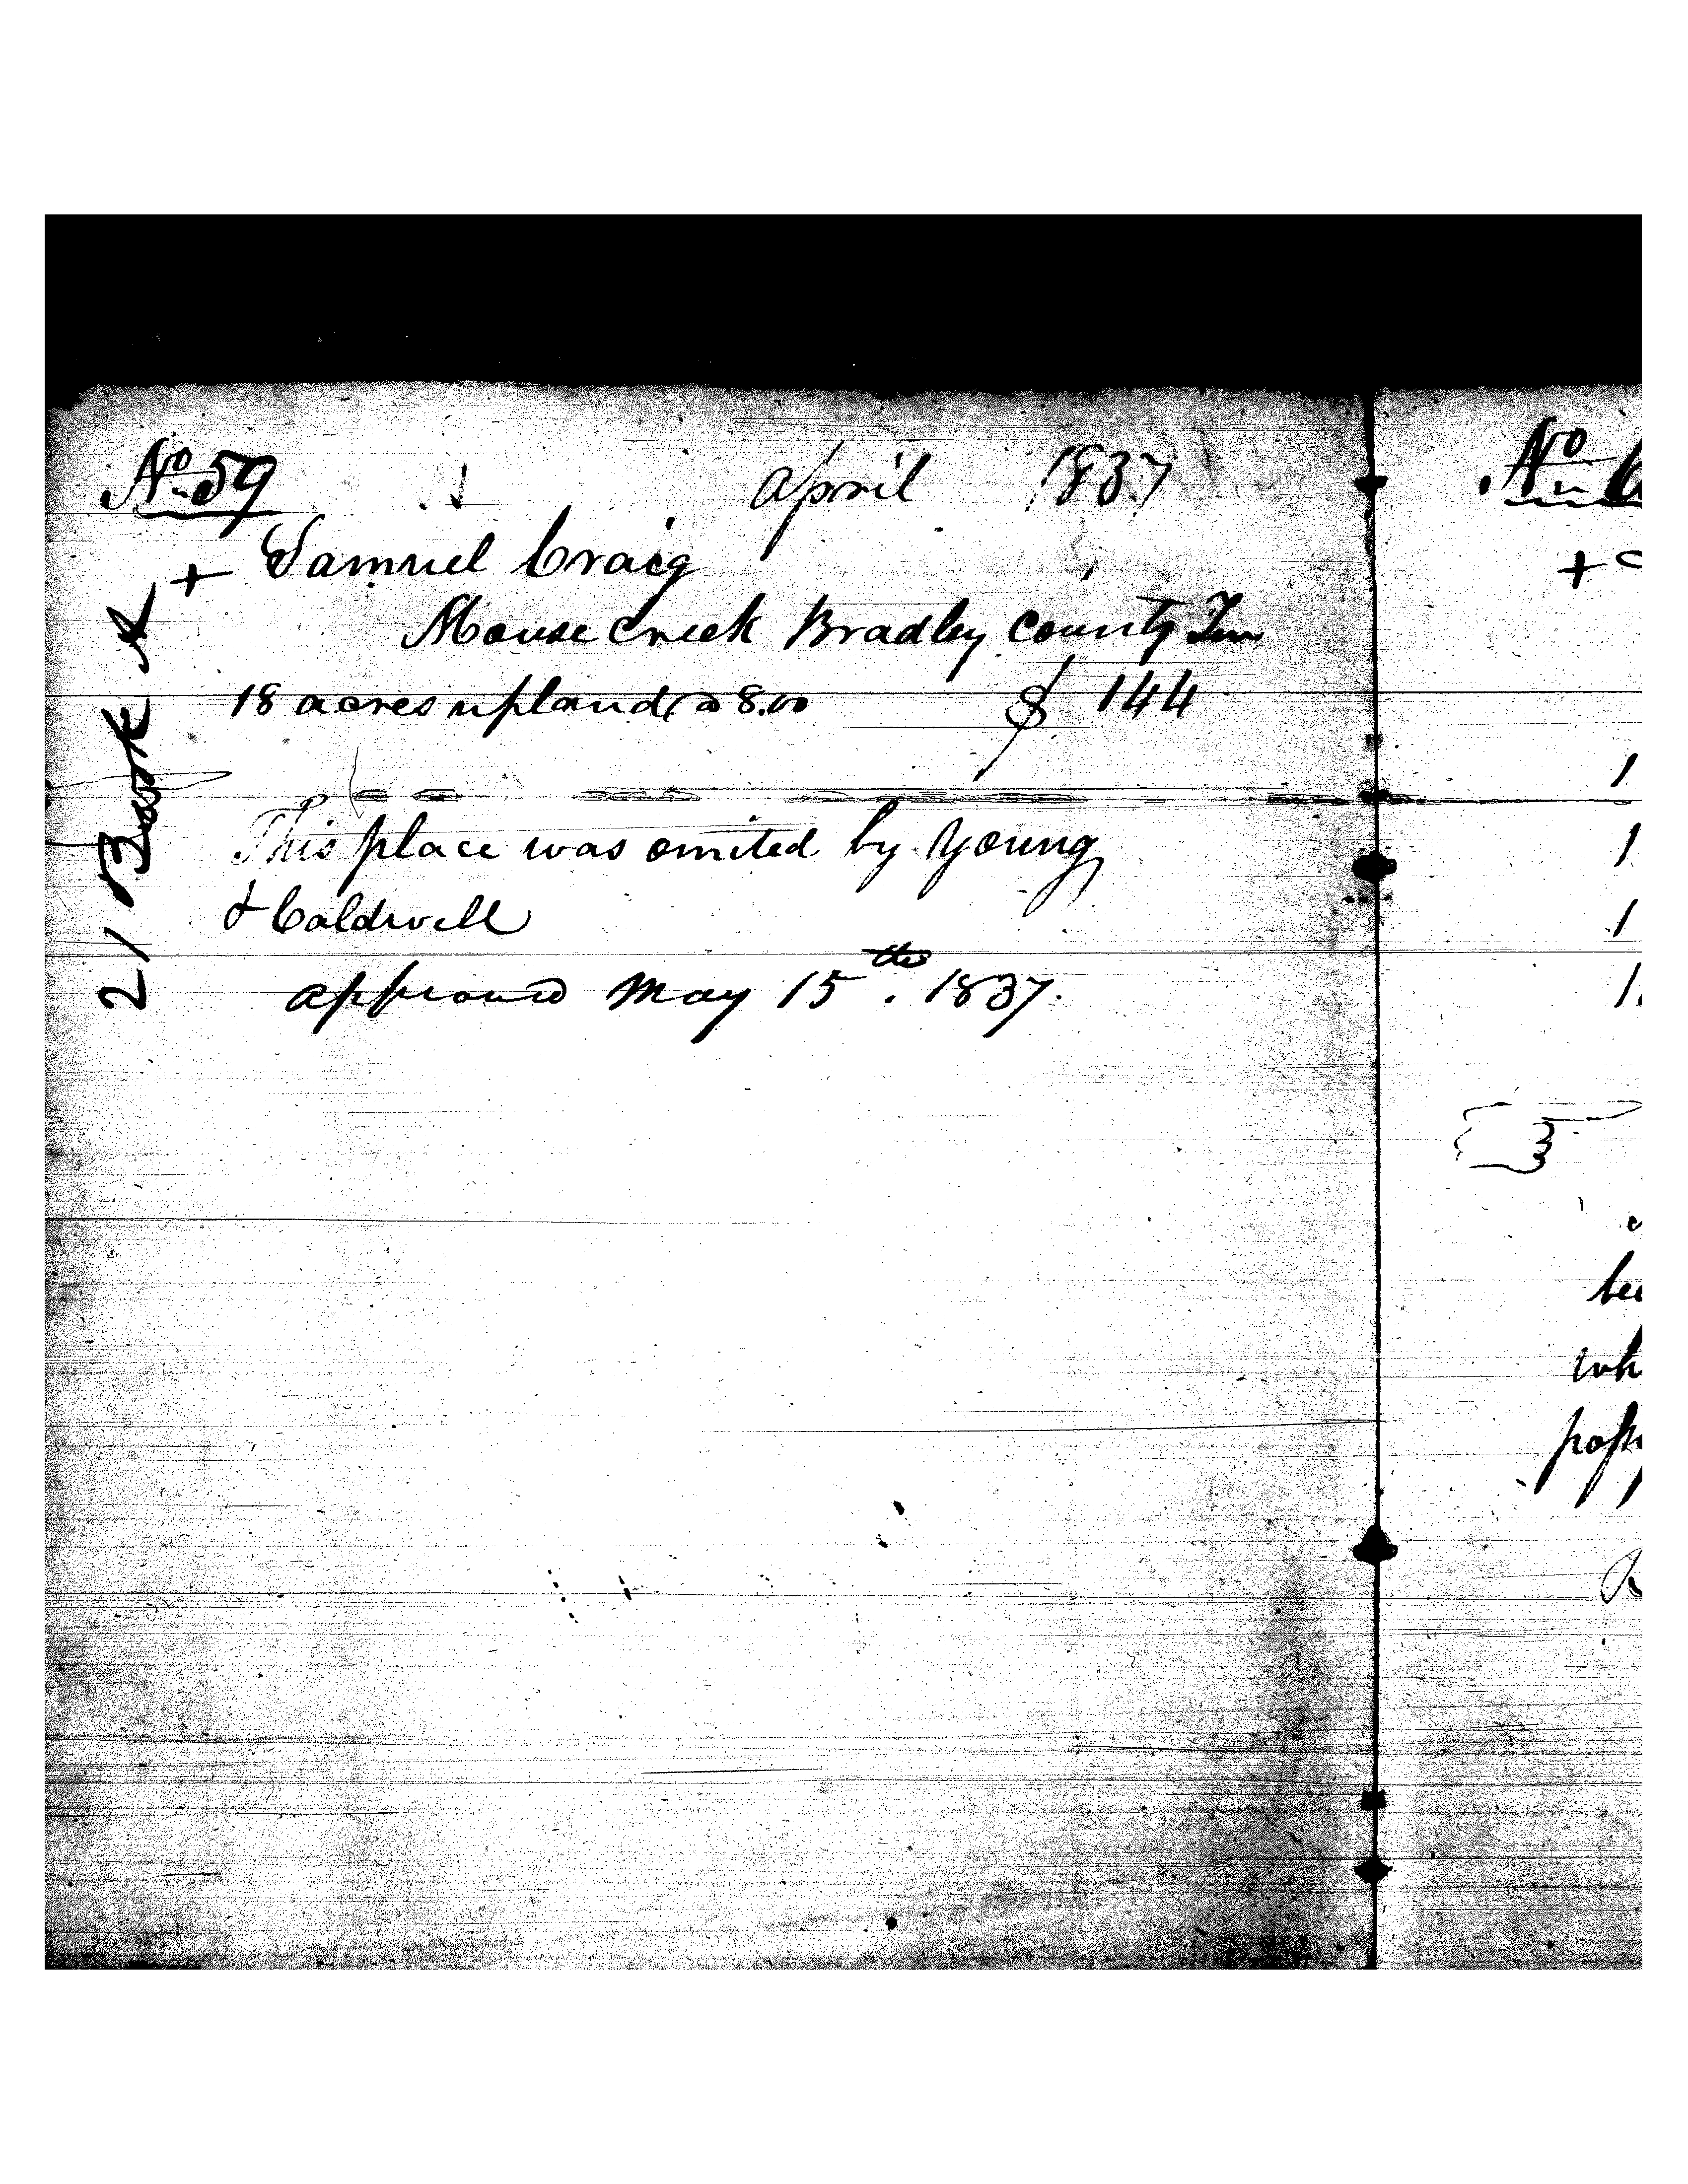 No. 59 april 1837
+ Samuel Craig
Mouse creek Bradley county Ten
18 acres upland @ 8.00 $ 144
This place was omited by Young
& Caldwell
approved May 15th. 1837.
21 Book A
No
+
1
1
1
1
wh